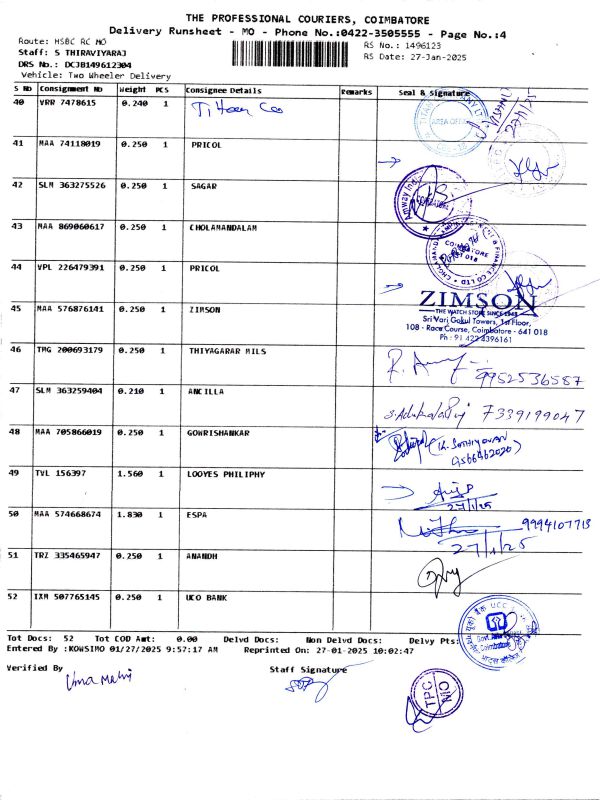 THE PROFESSIONAL COURIERS, COIMBATORE
Delivery Runsheet - MO - Phone No.:0422-3505555 - Page No.:4
Route: HSBC RC MO
RS No.: 1496123
Staff: S THIRAVIYARAJ
RS Date: 27-Jan-2025
DRS No.: DCJB149612304
Vehicle: Two Wheeler Delivery
S No Consignment No Weight PCS Consignee Details Remarks Seal & Signature
40 VRR 7478615 0.240 1
41 MAA 74118019 0.250 1 PRICOL
42 SLM 363275526 0.250 1 SAGAR
43 MAA 869060617 0.250 1 CHOLAMANDALAM
44 VPL 226479391 0.250 1 PRICOL
45 MAA 576876141 0.250 1 ZIMSON
ZIMSON
THE WATCH STORE SINCE 1948
Sri Vari Gokul Towers, 1st Floor,
108 - Race Course, Coimbatore - 641 018
Ph : 91 422 4396161
46 TMG 200693179 0.250 1 THIYAGARAR MILS
9952536587
47 SLM 363259404 0.210 1 ANCILLA
7339199047
48 MAA 705866019 0.250 1 GOWRISHANKAR
(K. SATHIYAVAN
9566462020)
49 TVL 156397 1.560 1 LOOYES PHILIPHY
27/1/25
50 MAA 574668674 1.830 1 ESPA
9994107713
27/1/25
51 TRZ 335465947 0.250 1 ANANDH
52 IXM 507765145 0.250 1 UCO BANK
Tot Docs: 52 Tot COD Amt: 0.00 Delvd Docs: Non Delvd Docs: Delvy Pts:
Entered By :KOWSIMO 01/27/2025 9:57:17 AM Reprinted On: 27-01-2025 10:02:47
Verified By
Staff Signature
Uma Mahi
TPC
MO